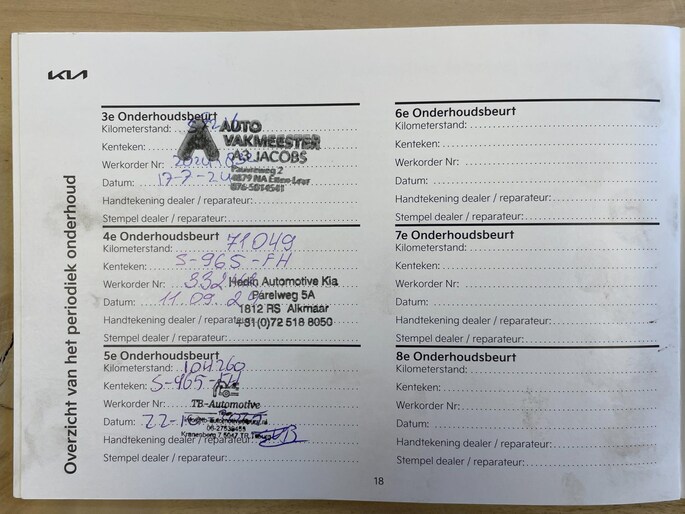 KIA
Overzicht van het periodiek onderhoud
3e Onderhoudsbeurt
Kilometerstand:
AUTO
VAKMEESTER
Kenteken:
A3 JACOBS
Werkorder Nr:
Pauvreweg 2
4879 NA Etten-Leur
Datum: 17-7-24
076-5014541
Handtekening dealer / reparateur:
Stempel dealer / reparateur:
4e Onderhoudsbeurt
Kilometerstand: 71049
Kenteken: S-965-FH
Werkorder Nr:
Hedin Automotive Kia
Parelweg 5A
Datum: 11.09.24
1812 RS Alkmaar
Handtekening dealer / reparateur:
+31(0)72 518 8050
Stempel dealer / reparateur:
5e Onderhoudsbeurt
Kilometerstand: 104260
Kenteken: S-965-FH
Werkorder Nr:
TB-Automotive
Datum: 22-10-
Handtekening dealer / reparateur:
Stempel dealer / reparateur:
6e Onderhoudsbeurt
Kilometerstand:
Kenteken:
Werkorder Nr:
Datum:
Handtekening dealer / reparateur:
Stempel dealer / reparateur:
7e Onderhoudsbeurt
Kilometerstand:
Kenteken:
Werkorder Nr:
Datum:
Handtekening dealer / reparateur:
Stempel dealer / reparateur:
8e Onderhoudsbeurt
Kilometerstand:
Kenteken:
Werkorder Nr:
Datum:
Handtekening dealer / reparateur:
Stempel dealer / reparateur:
18